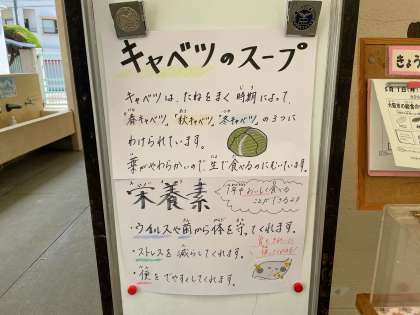 キャベツのスープ
キャベツは、たねをまく時期によって、
"春キャベツ"、"秋キャベツ"、"冬キャベツ"の3つに
わけられています。
葉がやわらかいので、生で食べるのにむいています。
栄養素
1年中おいしく食べる
ことができるよ♪
・ウイルスや菌から体を守ってくれます。
・ストレスを減らしてくれます。
・便をでやすくしてくれます。
きょう